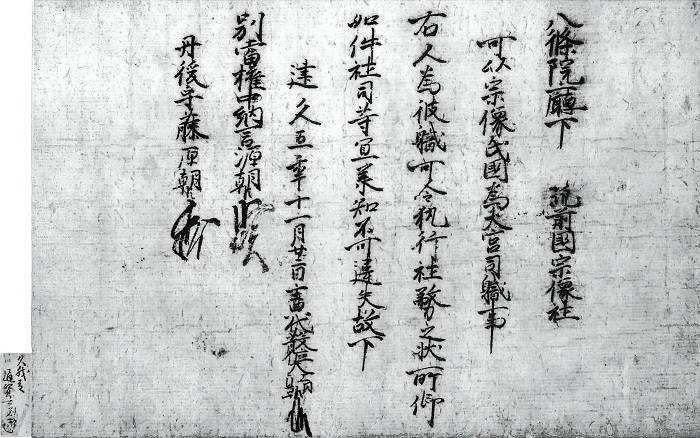 八條院廳下 筑前國宗像社
可以宗像氏國為大宮司職事
右人為彼職可令執行社務之状所仰
如件社司等宜承知不可違失故下
建久五年十一月廿二日主
別當權中納言源朝臣
丹後守藤原朝臣
久我
通資